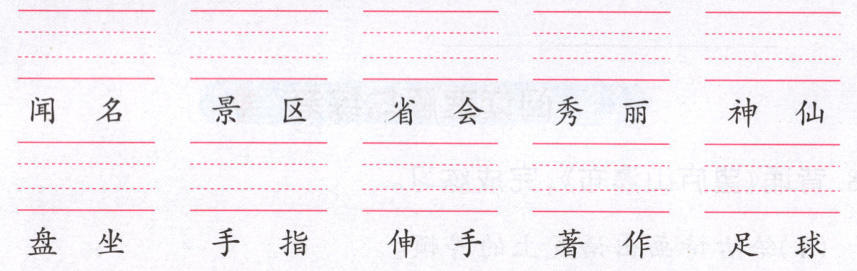 闻名 景区 省会 秀丽 神仙
盘坐 手指 伸手 著作 足球